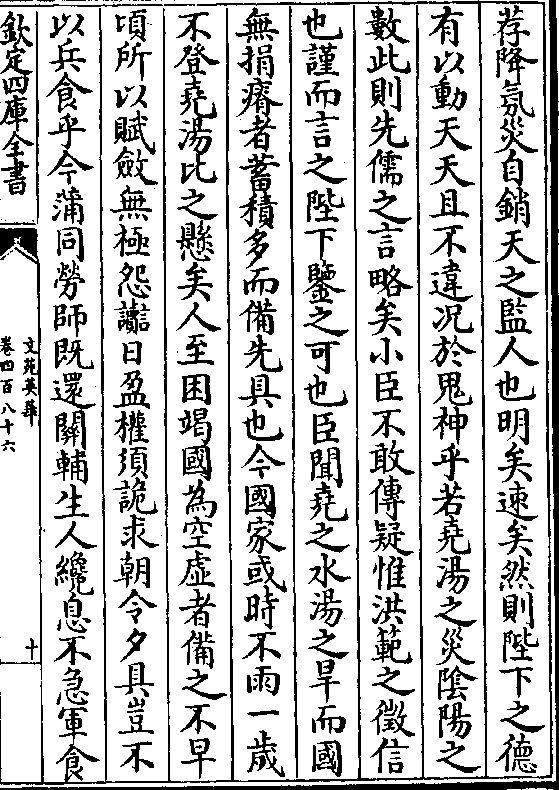 荐降氛災自銷天之監人也明矣速矣然則陛下之德
有以動天天且不違况於鬼神乎若堯湯之災隂陽之
數此則先儒之言略矣小臣不敢傳疑惟洪範之徵信
也謹而言之陛下鑒之可也臣聞堯之水湯之旱而國
無捐瘠者蓄積多而備先具也今國家或時不雨一歳
不登堯湯比之懸矣人至困竭國為空虚者備之不早
頃所以賦斂無極怨讟日盈權須詭求朝令夕具豈不
以兵食乎今蒲同勞師既還關輔生人纔息不急軍食
欽定四庫全書
文苑英華
卷四百八十六
十